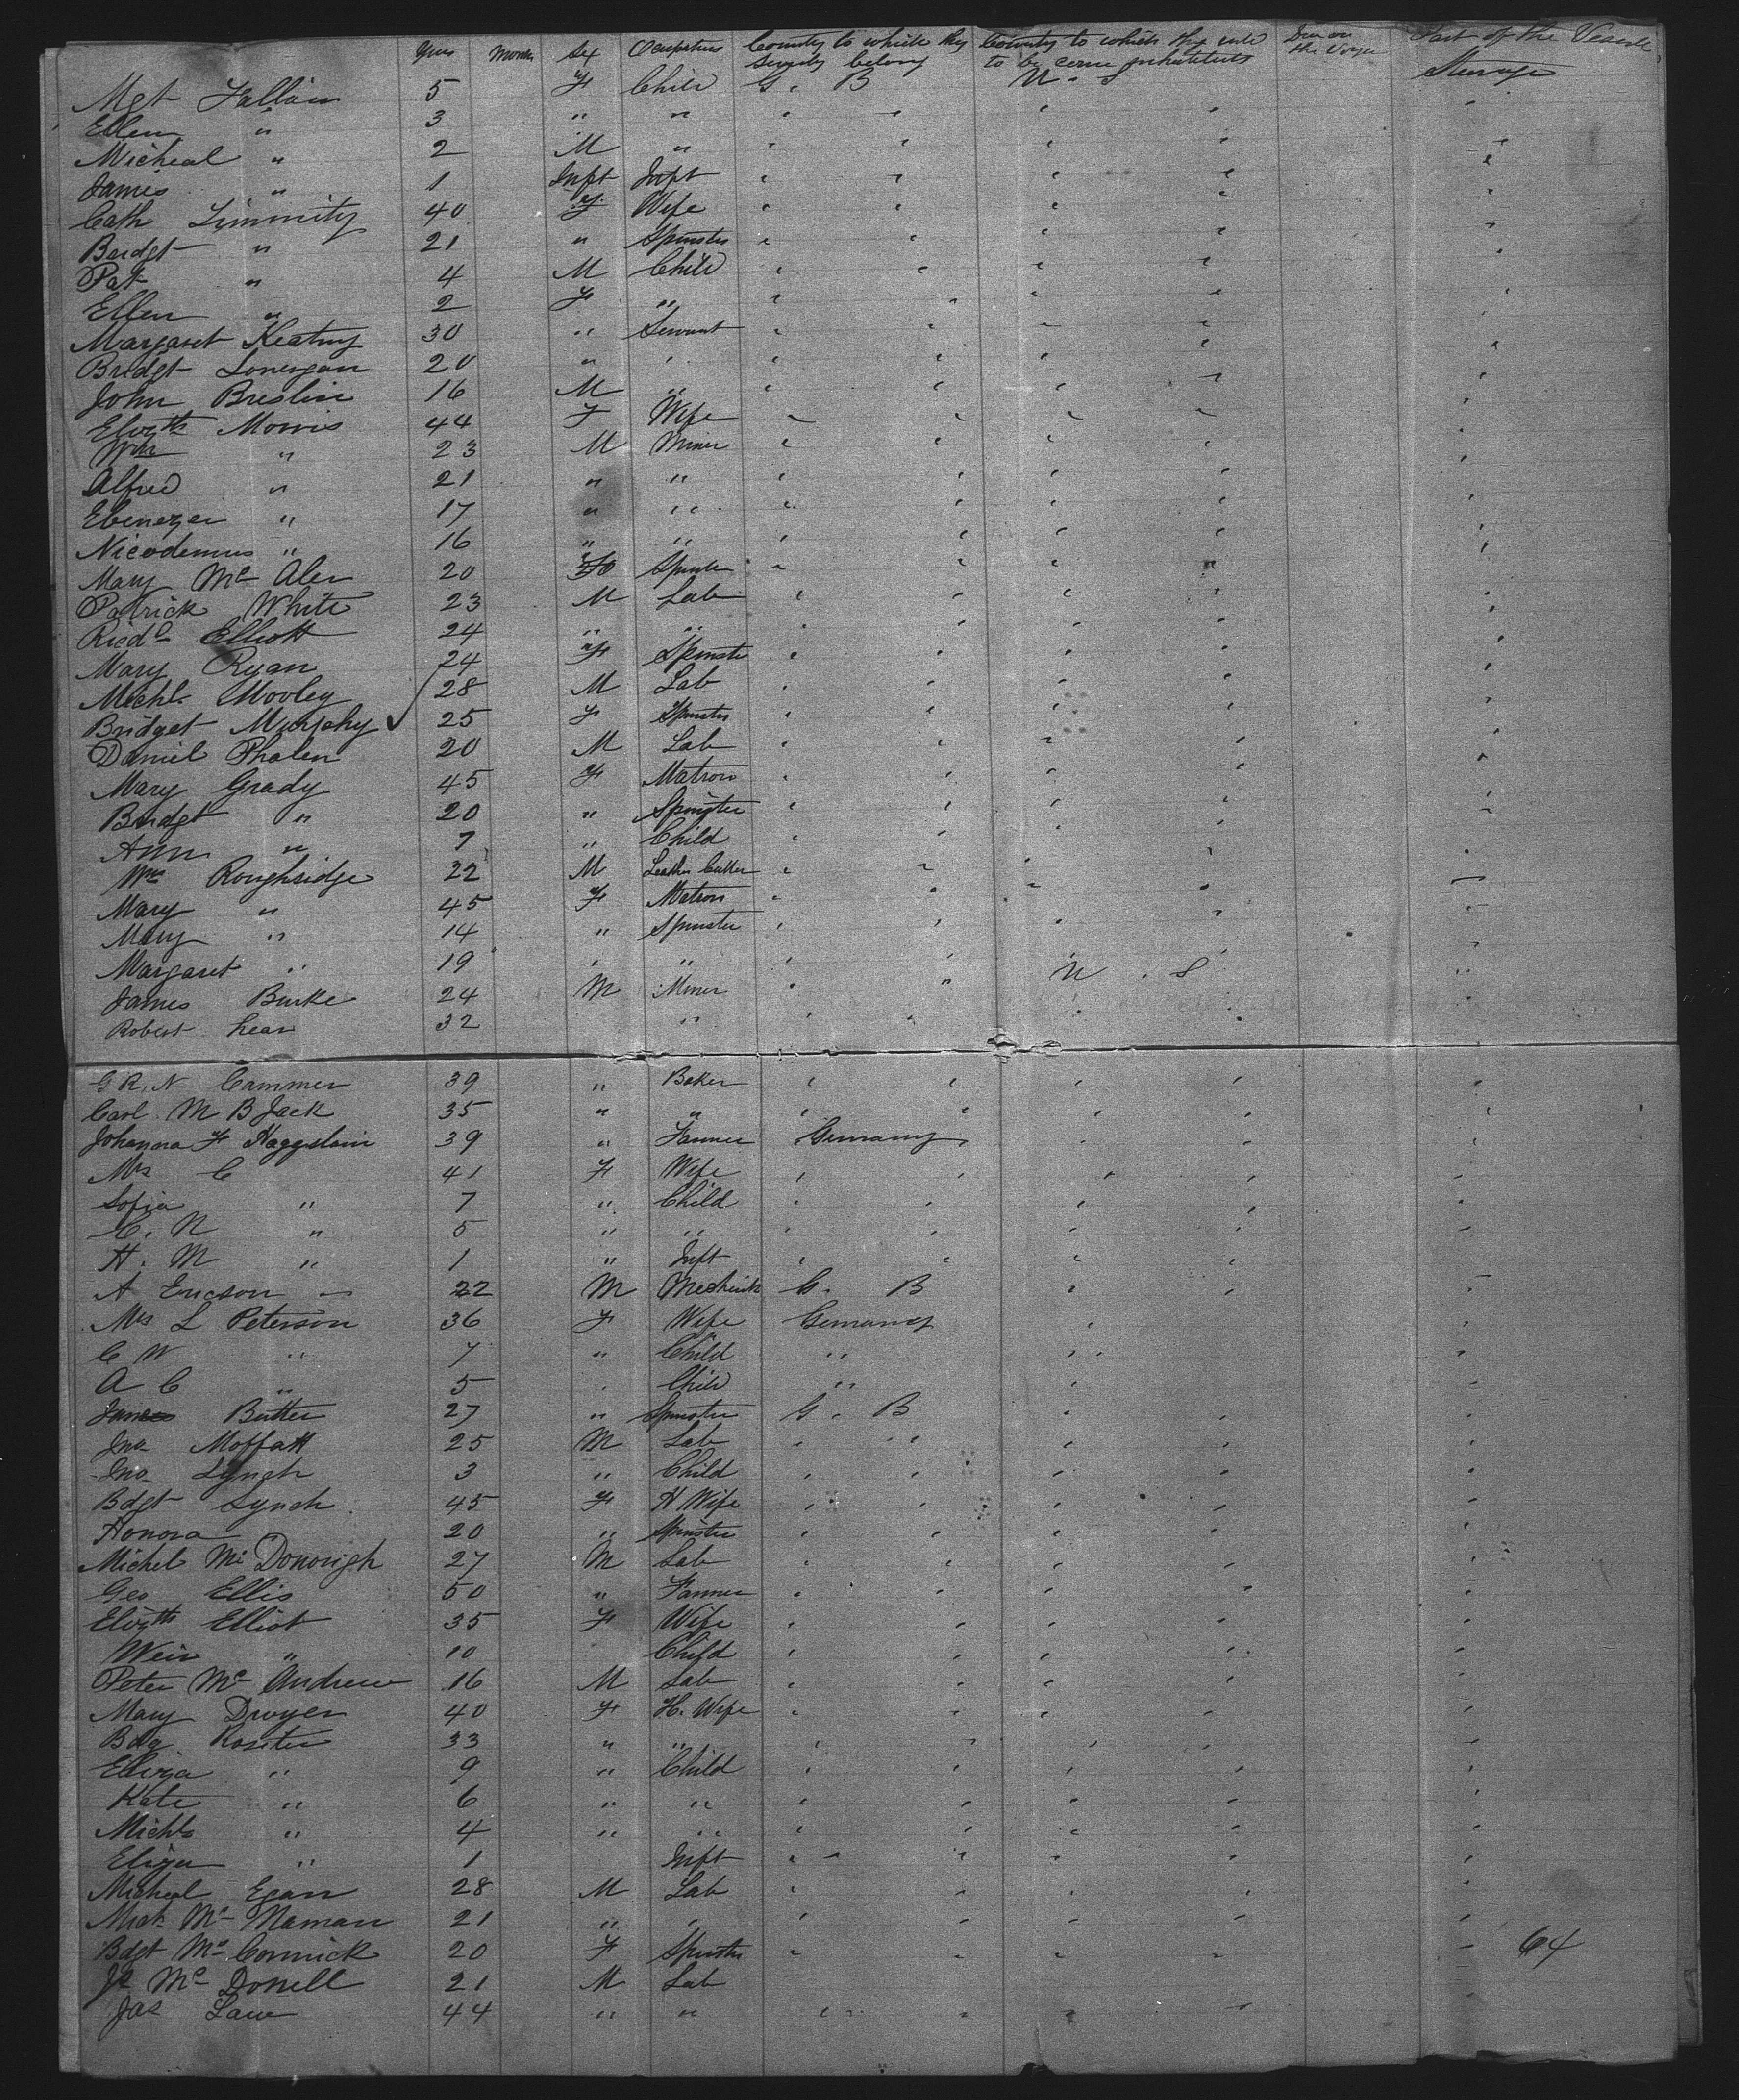 Years Months Sex Ocupations Country to which they severely belong Country to which they intd to be come inhabitants Died on the Voyge Part of the Vessel
Mgt Fallon 5 F Child G. B U. S Steerage
Ellen " 3 " "
Micheal " 2 M "
James " 1 Inft Inft
Cath Limmity 40 F Wife
Bridgt " 21 " Spinster
Pat " 4 M Child
Ellen " 2 F "
Margaret Keating 30 " Servant
Bridgt Lonergan 20 " "
John Breslin 16 M "
Elizth Morris 44 F Wife
Wm " 23 M Miner
Alfred " 21 " "
Ebenezer " 17 " "
Nicodemus " 16 " "
Mary Mc Aler 20 F Spinster
Patrick White 23 M Lab
Richd Elliott 24 " "
Mary Ryan 24 F Spinster
Michl. Wooley 28 M Lab
Bridget Murphy ✓ 25 F Spinster
Daniel Phalen 20 M Lab
Mary Grady 45 F Matron
Bridgt " 20 " Spinster
Ann " 7 " Child
Wm Roughsidge 22 M Leather Cutter
Mary " 45 F Matron
Mary " 14 " Spinster
Margaret " 19 " "
James Burke 24 M Miner " U. S
Robert hear 32 "
G R. N Cammer 39 " Baker
Carl M B Jack 35 " "
Johanna F Haggstain 39 " Farmer Germany
Mrs C 41 F Wife
Sofia " 7 " Child
C. N " 5 " "
H. M " 1 " Inft
A Ericson 22 M Mechanik G. B
Mrs L Peterson 36 F Wife Germany
C W " 7 " Child "
A C " 5 Child "
James Butter 27 " Spinster G. B
Jno Moffatt 25 M Lab
Jno Lynch 3 " Child
Bdgt Lynch 45 F H Wife
Honora 20 " Spinster
Michel Mc Donough 27 M Lab
Geo Ellis 50 " Farmer
Elizth Elliot 35 F Wife
Weir " 10 Child
Peter Mc Andrew 16 M Lab
Mary Dwyer 40 F H. Wife
Bdg Rositer 33 " "
Eliza " 9 " Child
Kate " 6 " "
Michl " 4 " "
Eliza " 1 Inft
Micheal Egan 28 M Lab
Mick Mc Naman 21 " "
Bdgt Mc Cormick 20 F Spinster 64
Js Mc Donell 21 M Lab
Jas Law 44 " "